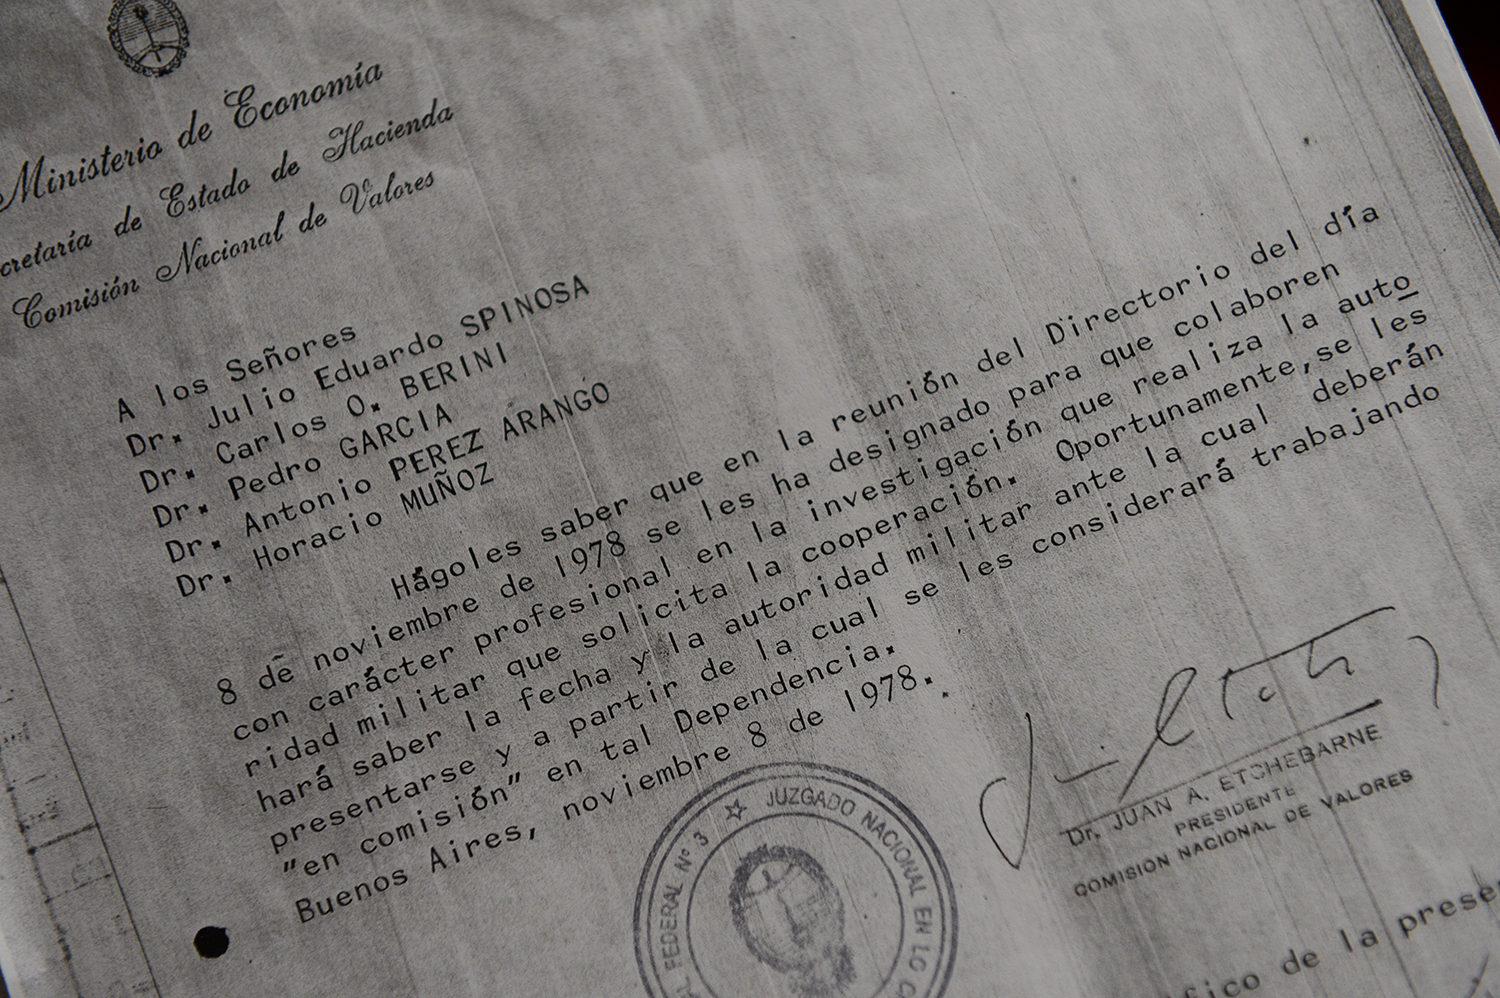 Ministerio de Economía
cretaría de Estado de Hacienda
Comisión Nacional de Valores
A los Señores
Dr. Julio Eduardo SPINOSA
Dr. Carlos O. BERINI
Dr. Pedro GARCIA
Dr. Antonio PEREZ ARANGO
Dr. Horacio MUÑOZ
Hágoles saber que en la reunión del Directorio del día
8 de noviembre de 1978 se les ha designado para que colaboren
con carácter profesional en la investigación que realiza la auto
ridad militar que solicita la cooperación. Oportunamente,se les
hará saber la fecha y la autoridad militar ante la cual deberán
presentarse y a partir de la cual se les considerará trabajando
"en comisión" en tal Dependencia.
Buenos Aires, noviembre 8 de 1978.
Dr. JUAN A. ETCHEBARNE
PRESIDENTE
COMISION NACIONAL DE VALORES
FEDERAL Nº 3 ☆ JUZGADO NACIONAL EN LO C
fico de la prese